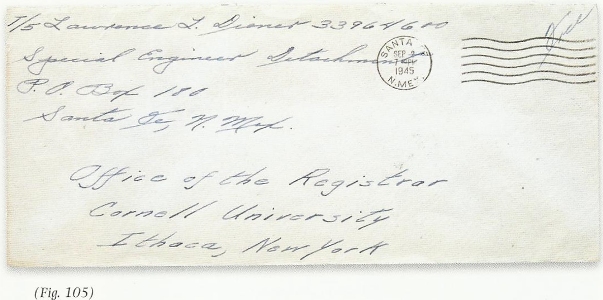 T/5 Lawrence L. Diener 33964600
Special Engineer Detachment
P.O. Box 180
Santa Fe, N. Mex.
SANTA
SEP 2
1945
N. MEX.
Free
Office of the Registrar
Cornell University
Ithaca, New York
(Fig. 105)